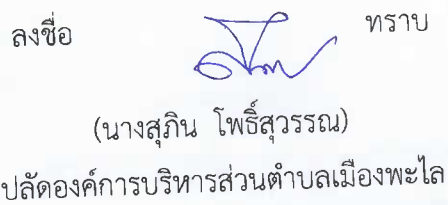 ลงชื่อ ทราบ
(นางสุภิน โพธิ์สุวรรณ)
ปลัดองค์การบริหารส่วนตำบลเมืองพะไล